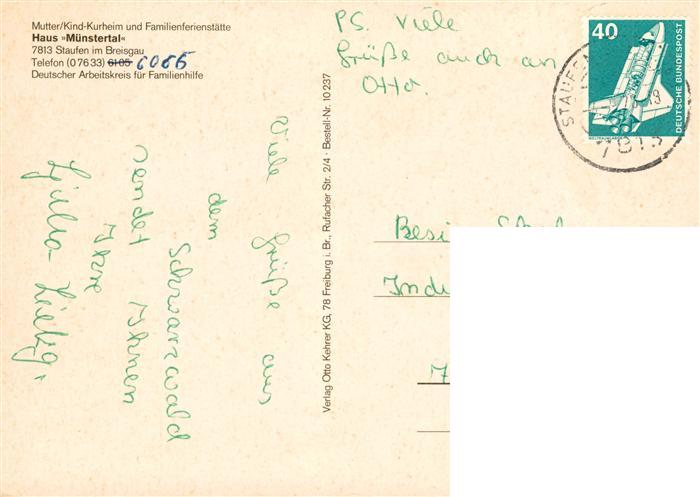 Mutter/Kind-Kurheim und Familienferienstätte
Haus »Münstertal«
7813 Staufen im Breisgau
Telefon (0 76 33) 6105 6066
Deutscher Arbeitskreis für Familienhilfe
PS. Viele
Grüße auch an
Otto.
40
DEUTSCHE BUNDESPOST
7813
Verlag Otto Kehrer KG, 78 Freiburg i. Br., Rufacher Str. 2/4 · Bestell-Nr. 10 237
Viele Grüße aus
dem
Schwarzwald
sendet Ihnen
Ihre